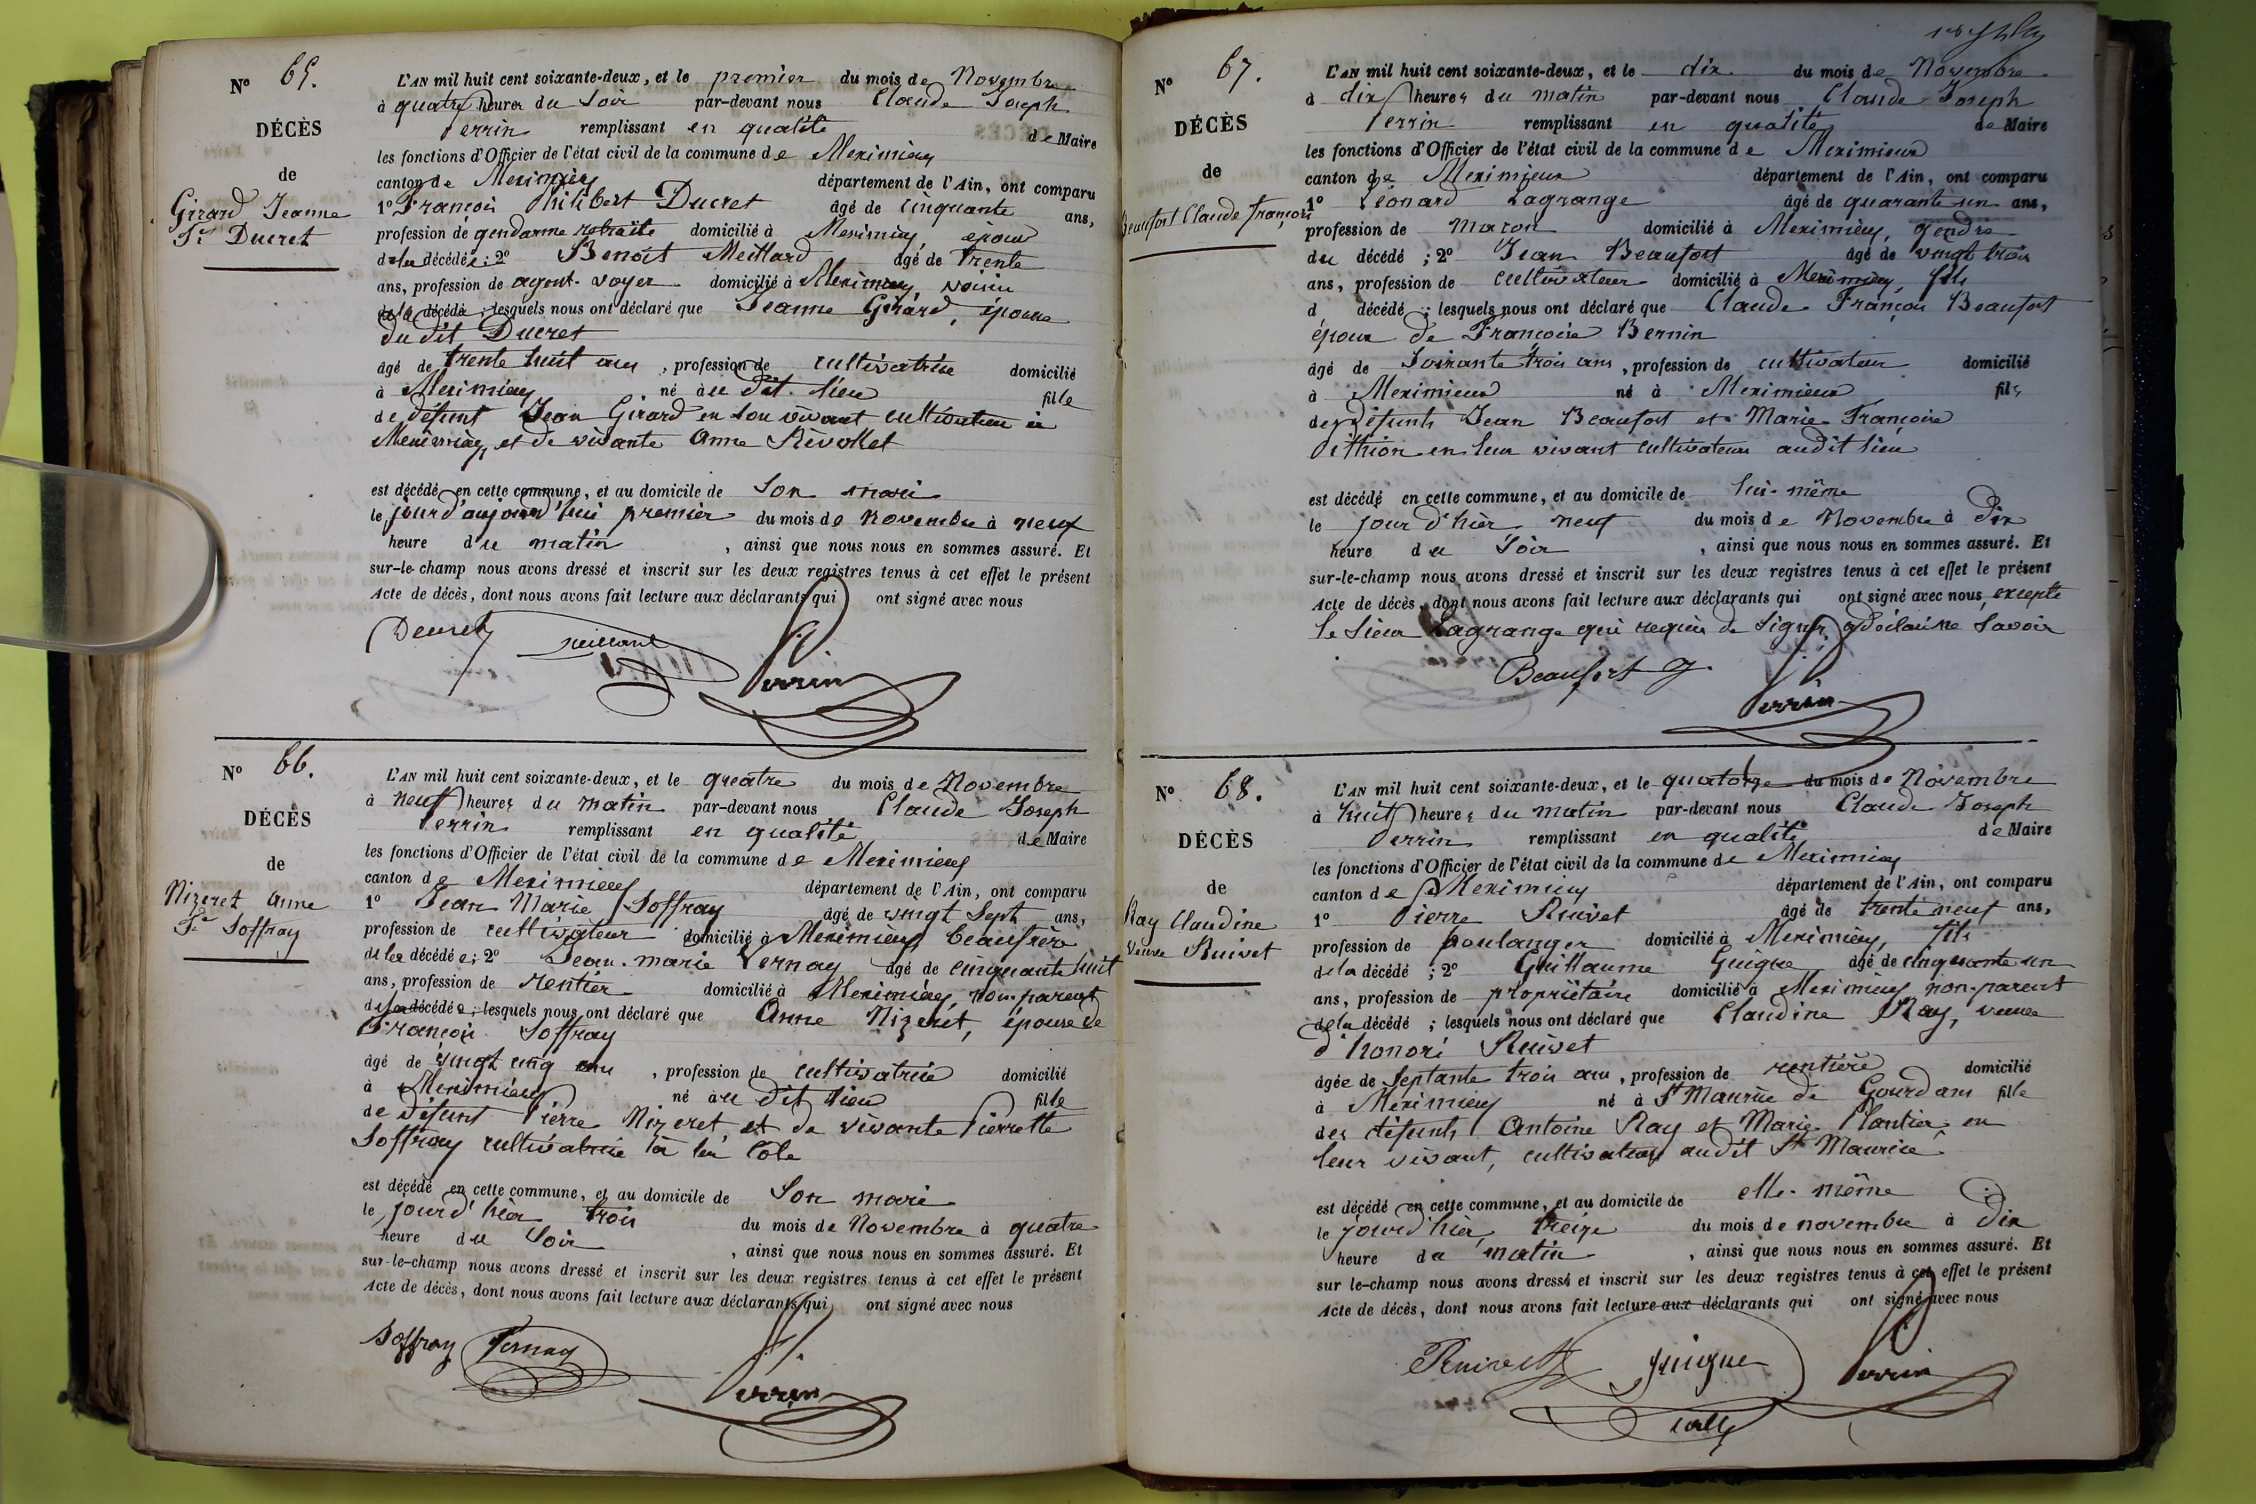 N° 65.
DÉCÈS
de
Girard Jeanne
fe Ducret
L'AN mil huit cent soixante-deux, et le premier du mois de Novembre
à quatre heures du Soir par-devant nous Claude Joseph
Perrin remplissant en qualité de Maire
les fonctions d'Officier de l'état civil de la commune de Meximieux
canton de Meximieux département de l'Ain, ont comparu
1° François Philibert Ducret âgé de cinquante ans,
profession de gendarme retraité domicilié à Meximieux, époux
de la décédée ; 2° Benoît Meillard âgé de trente
ans, profession de agent-voyer domicilié à Meximieux voisin
de la décédé ; lesquels nous ont déclaré que Jeanne Girard, épouse
du dit Ducret
âgé de trente huit ans, profession de cultivatrice domicilié
à Meximieux né au dit lieu fille
de défunt Jean Girard en son vivant cultivateur à
Meximieux, et de vivante Anne Révollet
est décédé en cette commune, et au domicile de Son mari
le jourd'aujourd'hui premier du mois de Novembre à neuf
heure du matin, ainsi que nous nous en sommes assuré. Et
sur-le-champ nous avons dressé et inscrit sur les deux registres tenus à cet effet le présent
Acte de décès, dont nous avons fait lecture aux déclarants qui ont signé avec nous
Ducret Meillard Perrin
N° 66.
DÉCÈS
de
Nizeret Anne
fe Soffray
L'AN mil huit cent soixante-deux, et le quatre du mois de Novembre
à neuf heures du matin par-devant nous Claude Joseph
Perrin remplissant en qualité de Maire
les fonctions d'Officier de l'état civil de la commune de Meximieux
canton de Meximieux département de l'Ain, ont comparu
1° Jean Marie Soffray âgé de vingt Sept ans,
profession de cultivateur domicilié à Meximieux, beaufrère
de la décédée ; 2° Jean-marie Vernay âgé de cinquante huit
ans, profession de rentier domicilié à Meximieux, non-parent
de la décédée ; lesquels nous ont déclaré que Anne Nizeret, épouse de
François Soffray
âgé de vingt cinq ans, profession de cultivatrice domicilié
à Meximieux né au dit lieu fille
de défunt Pierre Nizeret et de vivante Pierrette
Soffray cultivatrice à la Côte
est décédé en cette commune, et au domicile de Son mari
le jourd'hier trois du mois de Novembre à quatre
heure du Soir, ainsi que nous nous en sommes assuré. Et
sur-le-champ nous avons dressé et inscrit sur les deux registres tenus à cet effet le présent
Acte de décès, dont nous avons fait lecture aux déclarants qui ont signé avec nous
Soffray Vernay Perrin
N° 67.
DÉCÈS
de
Beaufort Claude françois
L'AN mil huit cent soixante-deux, et le dix du mois de Novembre
à dix heures du matin par-devant nous Claude-Joseph
Perrin remplissant en qualité de Maire
les fonctions d'Officier de l'état civil de la commune de Meximieux
canton de Meximieux département de l'Ain, ont comparu
1° Léonard Lagrange âgé de quarante un ans,
profession de maçon domicilié à Meximieux, gendre
du décédé ; 2° Jean Beaufort âgé de vingt trois
ans, profession de cultivateur domicilié à Meximieux, fils
d décédé ; lesquels nous ont déclaré que Claude François Beaufort
époux de Françoise Bernin
âgé de Soixante trois ans, profession de cultivateur domicilié
à Meximieux né à Meximieux fils
des défunts Jean Beaufort et Marie Françoise
Pithion en leur vivant cultivateurs audit lieu
est décédé en cette commune, et au domicile de lui-même
le jour d'hier neuf du mois de Novembre à dix
heure du Soir, ainsi que nous nous en sommes assuré. Et
sur-le-champ nous avons dressé et inscrit sur les deux registres tenus à cet effet le présent
Acte de décès, dont nous avons fait lecture aux déclarants qui ont signé avec nous, excepté
le Sieur Lagrange qui requis de Signer, a déclaré ne Savoir
Beaufort J. Perrin
N° 68.
DÉCÈS
de
Ray Claudine
veuve Ruivet
L'AN mil huit cent soixante-deux, et le quatorze du mois de Novembre
à huit heures du matin par-devant nous Claude Joseph
Perrin remplissant en qualité de Maire
les fonctions d'Officier de l'état civil de la commune de Meximieux
canton de Meximieux département de l'Ain, ont comparu
1° Pierre Ruivet âgé de trente neuf ans,
profession de boulanger domicilié à Meximieux, fils
de la décédé ; 2° Guillaume Guigue âgé de cinquante un
ans, profession de propriétaire domicilié à Meximieux non-parent
de la décédé ; lesquels nous ont déclaré que Claudine Ray, veuve
d'honoré Ruivet
âgée de Septante trois ans, profession de rentière domicilié
à Meximieux né à St Maurice de Gourdans fille
des défunts Antoine Ray et Marie Plantier en
leur vivant, cultivateurs audit St Maurice
est décédé en cette commune, et au domicile de elle-même
le jourd'hier, treize du mois de novembre à dix
heure du matin, ainsi que nous nous en sommes assuré. Et
sur le-champ nous avons dressé et inscrit sur les deux registres tenus à cet effet le présent
Acte de décès, dont nous avons fait lecture aux déclarants qui ont signé avec nous
Ruivet Guigue Perrin